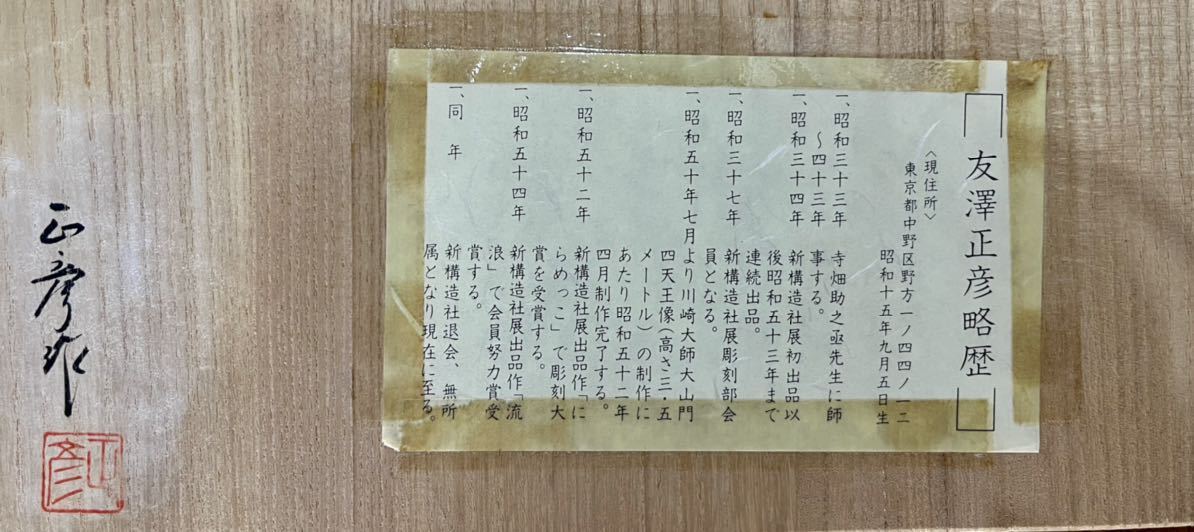 友澤正彦略歴
〈現住所〉
東京都中野区野方一ノ四四ノ一二
昭和十五年九月五日生
一、昭和三十三年
～四十三年
寺畑助之丞先生に師
事する。
一、昭和三十四年
新構造社展初出品以
後昭和五十三年まで
連続出品。
一、昭和三十七年
新構造社展彫刻部会
員となる。
一、昭和五十年七月より川崎大師大山門
四天王像(高さ三・五
メートル)の制作に
あたり昭和五十二年
四月制作完了する。
一、昭和五十二年
新構造社展出品作「に
らめっこ」で彫刻大
賞を受賞する。
一、昭和五十四年
新構造社展出品作「流
浪」で会員努力賞受
賞する。
一、同年
新構造社退会、無所
属となり現在に至る。
正彦作
正彦